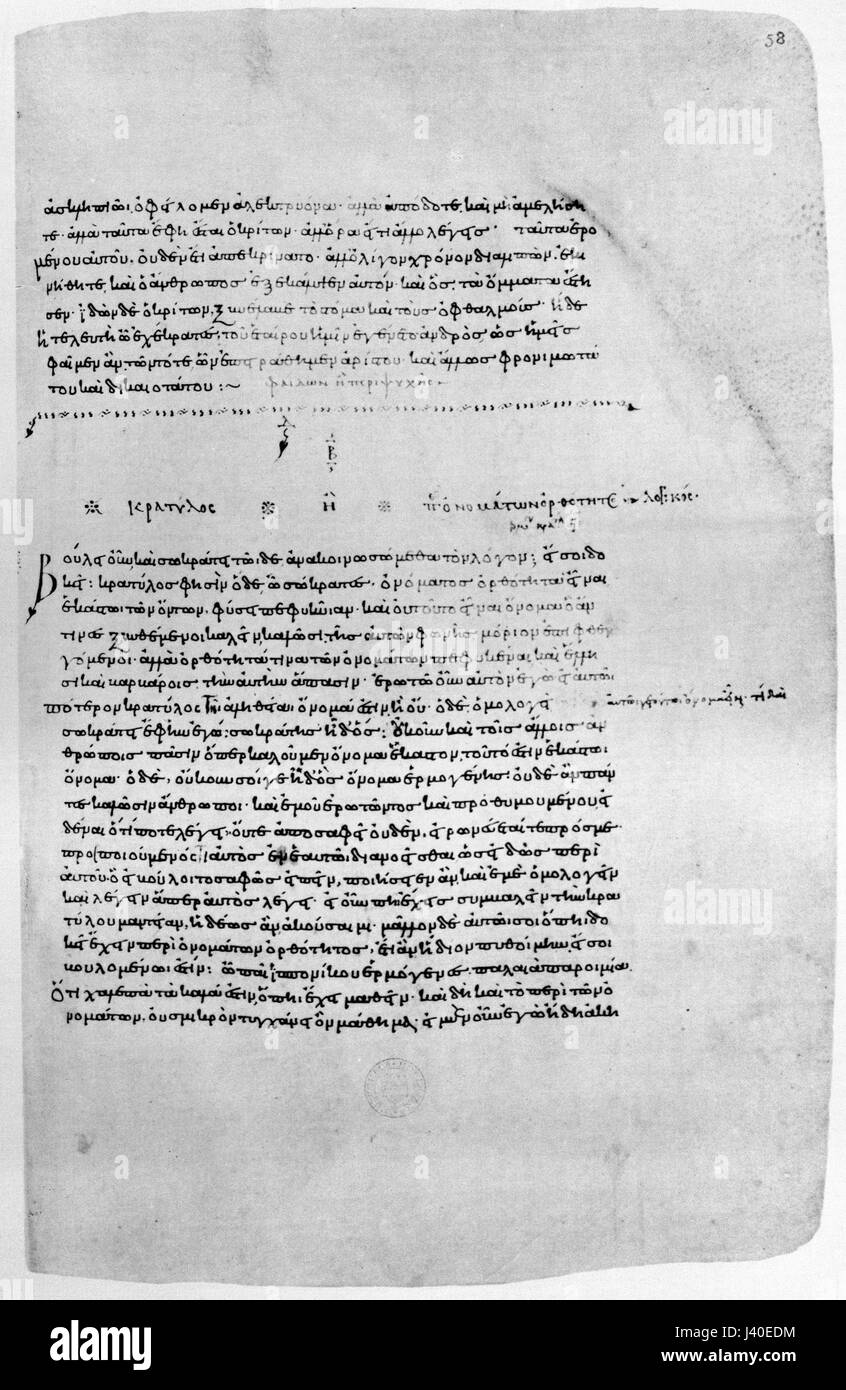 ἀσκληπιῶι ὀφείλομεν ἀλεκτρυόνα· ἀλλὰ ἀπόδοτε, καὶ μὴ ἀμελήση
τε· ἀλλὰ ταῦτα ἔφη ἔσται ὁ κρίτων· ἀλλ' ὅρα εἴ τι ἄλλο λέγεις· ταῦτα ἐρο
μένου αὐτοῦ, οὐδὲν ἔτι ἀπεκρίνατο· ἀλλ' ὀλίγον χρόνον διαλιπὼν, ἐκι
νήθη τε, καὶ ὁ ἄνθρωπος ἐξεκάλυψεν αὐτόν· καὶ ὃς τὰ ὄμματα ἔστη
σεν· ἰδὼν δὲ ὁ κρίτων, ξυνέλαβε τὸ στόμα καὶ τοὺς ὀφθαλμούς· ἥδε
ἡ τελευτὴ ὦ ἐχέκρατες τοῦ ἑταίρου ἡμῖν ἐγένετο ἀνδρὸς ὡς ἡμεῖς
φαῖμεν ἂν τῶν τότε ὧν ἐπειράθημεν ἀρίστου· καὶ ἄλλως φρονιμωτά
του καὶ δικαιοτάτου :~ φαίδων ἢ περὶ ψυχῆς
ΚΡΑΤΥΛΟΣ Ἢ ὀνομάτων ὀρθότητος λογικός·
Βούλει οὖν καὶ σωκράτει τῶιδε ἀνακοινωσόμεθα τὸν λόγον; εἴ σοι δο
κεῖ: κρατύλος φησὶν ὅδε ὦ σώκρατες, ὀνόματος ὀρθότητα εἶναι
ἑκάστωι τῶν ὄντων, φύσει πεφυκυῖαν· καὶ οὐ τοῦτο εἶναι ὄνομα ὃ ἄν
τινες ξυνθέμενοι καλεῖν καλῶσι, τῆς αὑτῶν φωνῆς μόριον ἐπιφθεγ
γόμενοι· ἀλλὰ ὀρθότητά τινα τῶν ὀνομάτων πεφυκέναι καὶ ἕλλη
σι καὶ βαρβάροις τὴν αὐτὴν ἅπασιν· ἐρωτῶ οὖν αὐτὸν ἐγὼ εἰ αὐτῶι
πότερον κρατύλος τῆι ἀληθείαι ὄνομα ἐστὶν ἢ οὔ· ὁ δὲ ὁμολογεῖ
σωκράτει ἔφην ἐγώ; σωκράτης ἦ δ' ὅς: οὐκοῦν καὶ τοῖς ἄλλοις ἀν
θρώποις πᾶσιν ὅπερ καλοῦμεν ὄνομα ἕκαστον, τοῦτό ἐστιν ἑκάστωι
ὄνομα· ὁ δὲ, οὔκουν σοί γε ἦ δ' ὃς ὄνομα ἑρμογένης· οὐδὲ ἂν πάν
τες καλῶσιν ἄνθρωποι· καὶ ἐμοῦ ἐρωτῶντος καὶ προθυμουμένου εἰ
δέναι ὅτι ποτὲ λέγει, οὔτε ἀποσαφεῖ οὐδὲν, εἰρωνεύεταί τε πρός με·
προσποιούμενός τι αὐτὸς ἐν ἑαυτῶι διανοεῖσθαι ὡς εἰδὼς περὶ
αὐτοῦ· ὃ εἰ βούλοιτο σαφῶς εἰπεῖν, ποιήσειεν ἂν καὶ ἐμὲ ὁμολογεῖν
καὶ λέγειν ἅπερ αὐτὸς λέγει· εἰ οὖν πηι ἔχεις συμβαλεῖν τὴν κρα
τύλου μαντείαν, ἡδέως ἂν ἀκούσαιμι· μᾶλλον δὲ αὐτῶι σοι ὅπηι δο
κεῖ ἔχειν περὶ ὀνομάτων ὀρθότητος, ἔτι ἂν ἥδιον πυθοίμην, εἴ σοι
βουλομένωι ἐστίν: ὦ παῖ ἱππονίκου ἑρμόγενες, παλαιὰ παροιμία
ὅτι χαλεπὰ τὰ καλά ἐστιν, ὅπηι ἔχει μαθεῖν· καὶ δὴ καὶ τὸ περὶ τῶν ὀ
νομάτων, οὐ σμικρὸν τυγχάνει ὂν μάθημα· εἰ μὲν οὖν ἐγὼ ἤδη ἀκη
58